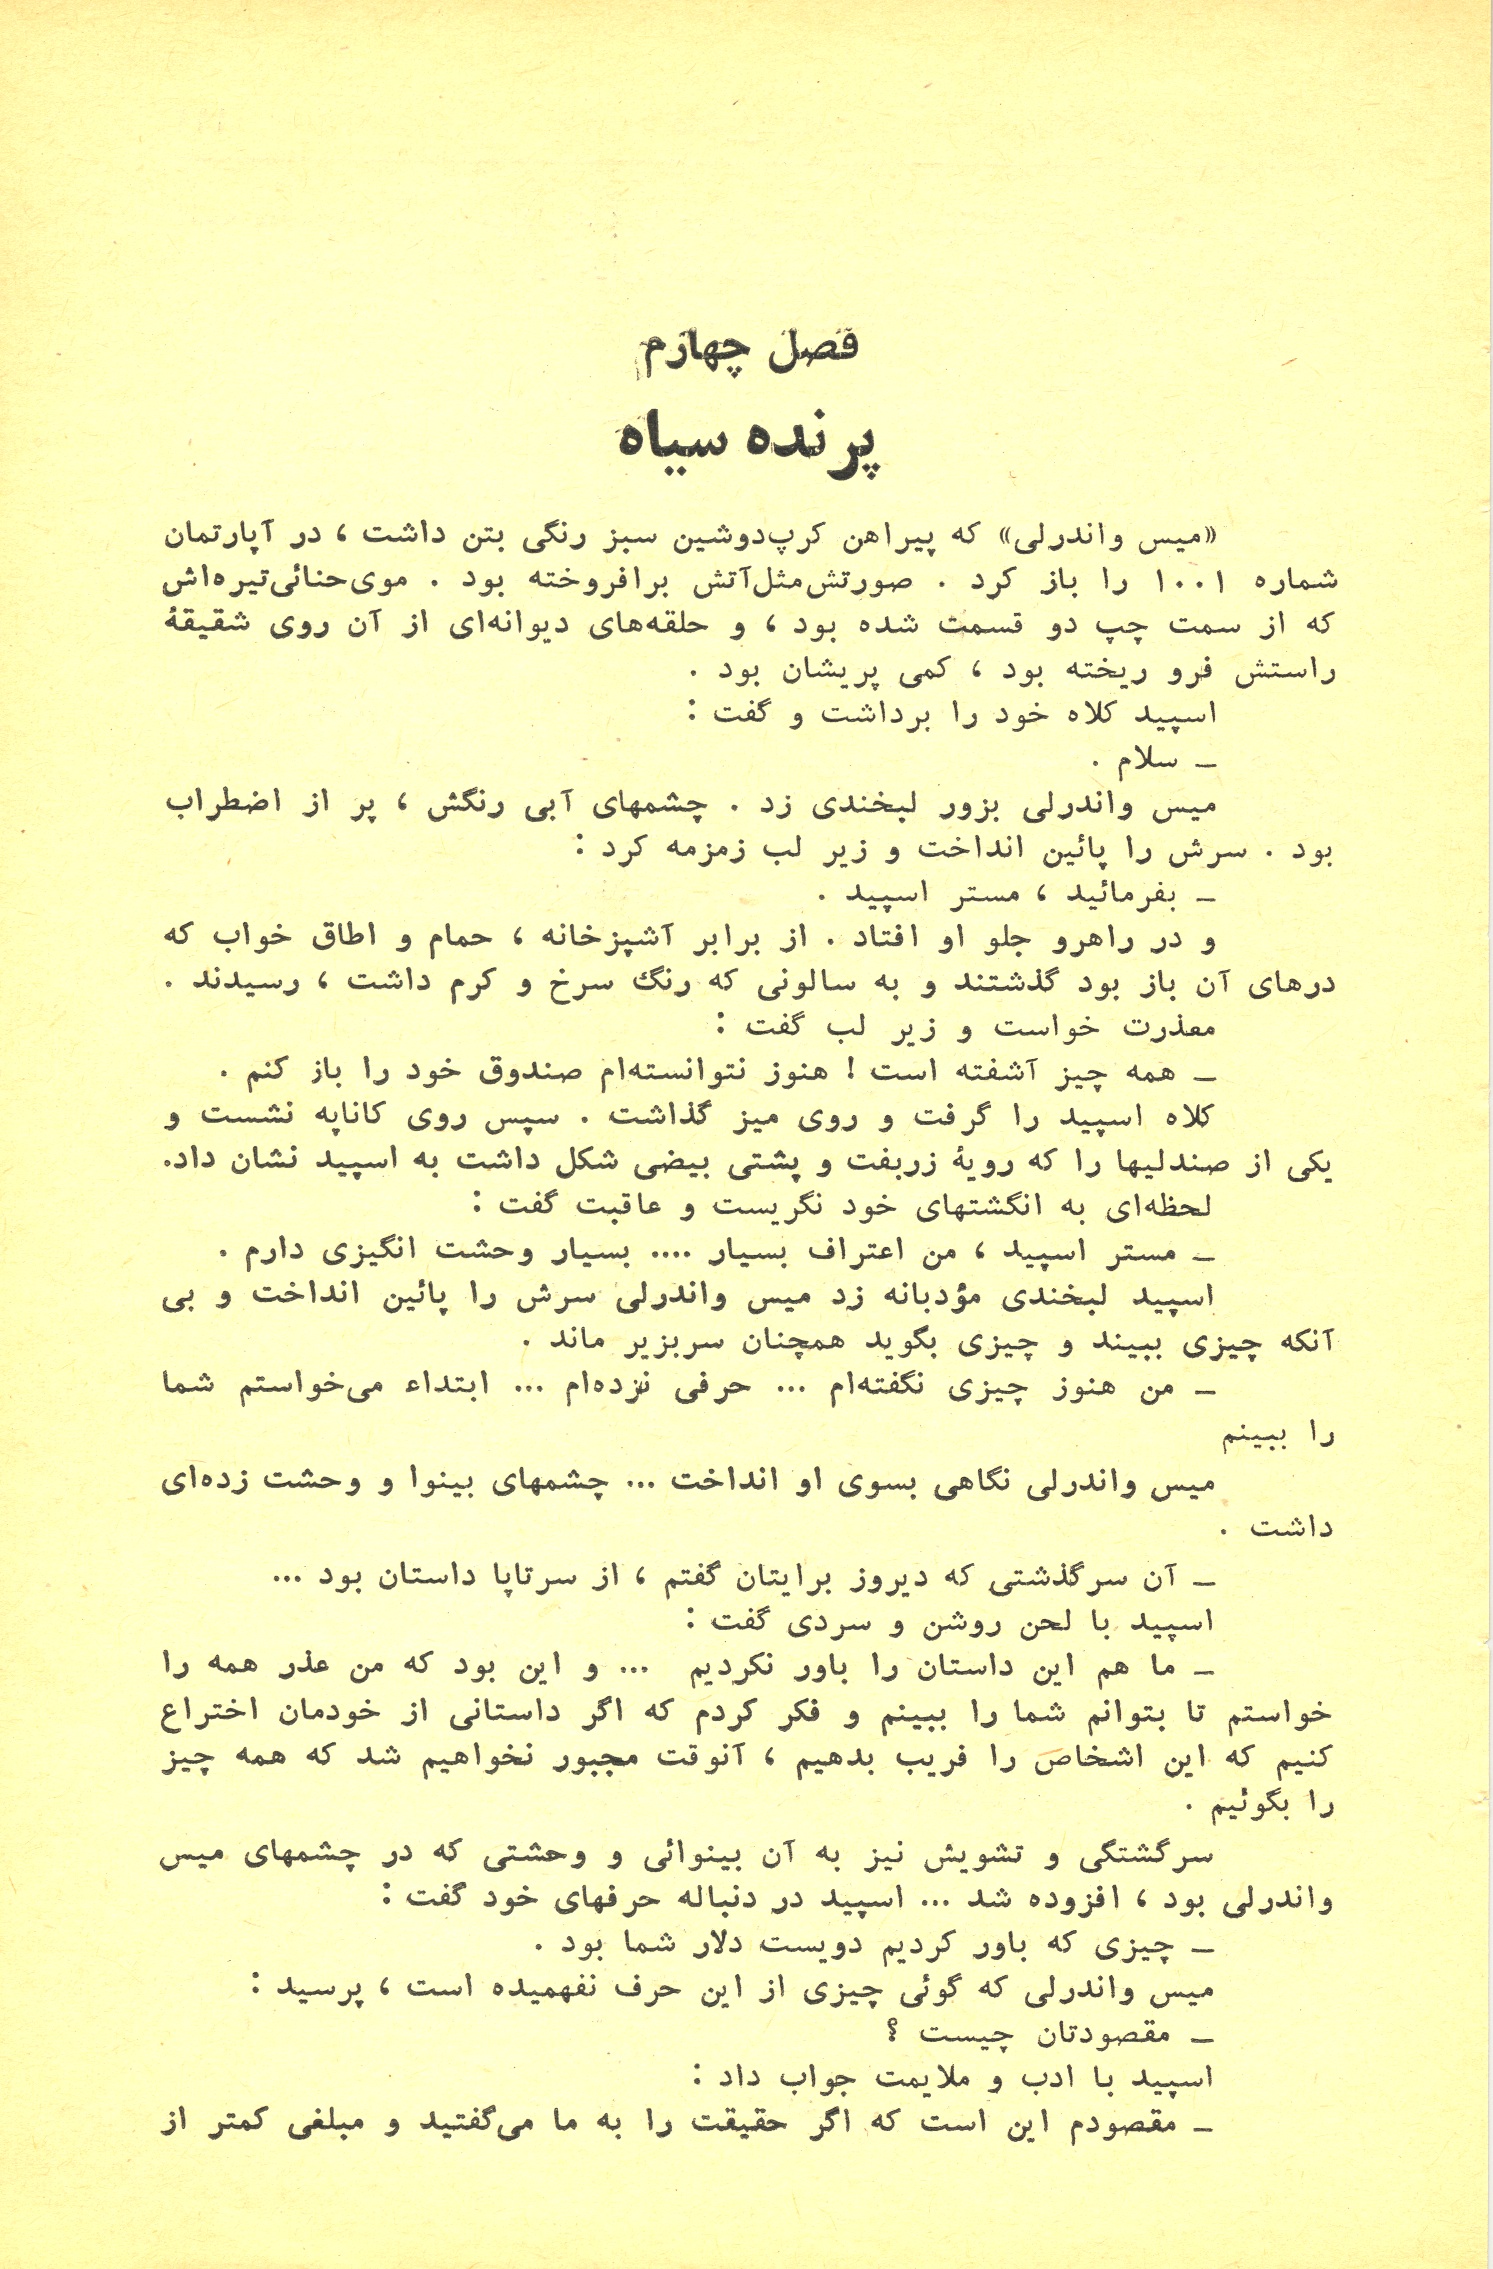 فصل چهارم
پرنده سیاه
«میس واندرلی» که پیراهن کرپ‌دوشین سبز رنگی بتن داشت ، در آپارتمان
شماره ۱۰۰۱ را باز کرد . صورتش مثل آتش برافروخته بود . موی حنائی تیره‌اش
که از سمت چپ دو قسمت شده بود ، و حلقه‌های دیوانه‌ای از آن روی شقیقهٔ
راستش فرو ریخته بود ، کمی پریشان بود .
اسپید کلاه خود را برداشت و گفت :
ـ سلام .
میس واندرلی بزور لبخندی زد . چشمهای آبی رنگش ، پر از اضطراب
بود . سرش را پائین انداخت و زیر لب زمزمه کرد :
ـ بفرمائید ، مستر اسپید .
و در راهرو جلو او افتاد . از برابر آشپزخانه ، حمام و اطاق خواب که
درهای آن باز بود گذشتند و به سالونی که رنگ سرخ و کرم داشت ، رسیدند .
معذرت خواست و زیر لب گفت :
ـ همه چیز آشفته است ! هنوز نتوانسته‌ام صندوق خود را باز کنم .
کلاه اسپید را گرفت و روی میز گذاشت . سپس روی کاناپه نشست و
یکی از صندلیها را که رویهٔ زربفت و پشتی بیضی شکل داشت به اسپید نشان داد.
لحظه‌ای به انگشتهای خود نگریست و عاقبت گفت :
ـ مستر اسپید ، من اعتراف بسیار .... بسیار وحشت انگیزی دارم .
اسپید لبخندی مؤدبانه زد میس واندرلی سرش را پائین انداخت و بی
آنکه چیزی ببیند و چیزی بگوید همچنان سربزیر ماند .
ـ من هنوز چیزی نگفته‌ام ... حرفی نزده‌ام ... ابتداء می‌خواستم شما
را ببینم
میس واندرلی نگاهی بسوی او انداخت ... چشمهای بینوا و وحشت زده‌ای
داشت .
ـ آن سرگذشتی که دیروز برایتان گفتم ، از سرتاپا داستان بود ...
اسپید با لحن روشن و سردی گفت :
ـ ما هم این داستان را باور نکردیم ... و این بود که من عذر همه را
خواستم تا بتوانم شما را ببینم و فکر کردم که اگر داستانی از خودمان اختراع
کنیم که این اشخاص را فریب بدهیم ، آنوقت مجبور نخواهیم شد که همه چیز
را بگوئیم .
سرگشتگی و تشویش نیز به آن بینوائی و وحشتی که در چشمهای میس
واندرلی بود ، افزوده شد ... اسپید در دنباله حرفهای خود گفت :
ـ چیزی که باور کردیم دویست دلار شما بود .
میس واندرلی که گوئی چیزی از این حرف نفهمیده است ، پرسید :
ـ مقصودتان چیست ؟
اسپید با ادب و ملایمت جواب داد :
ـ مقصودم این است که اگر حقیقت را به ما می‌گفتید و مبلغی کمتر از